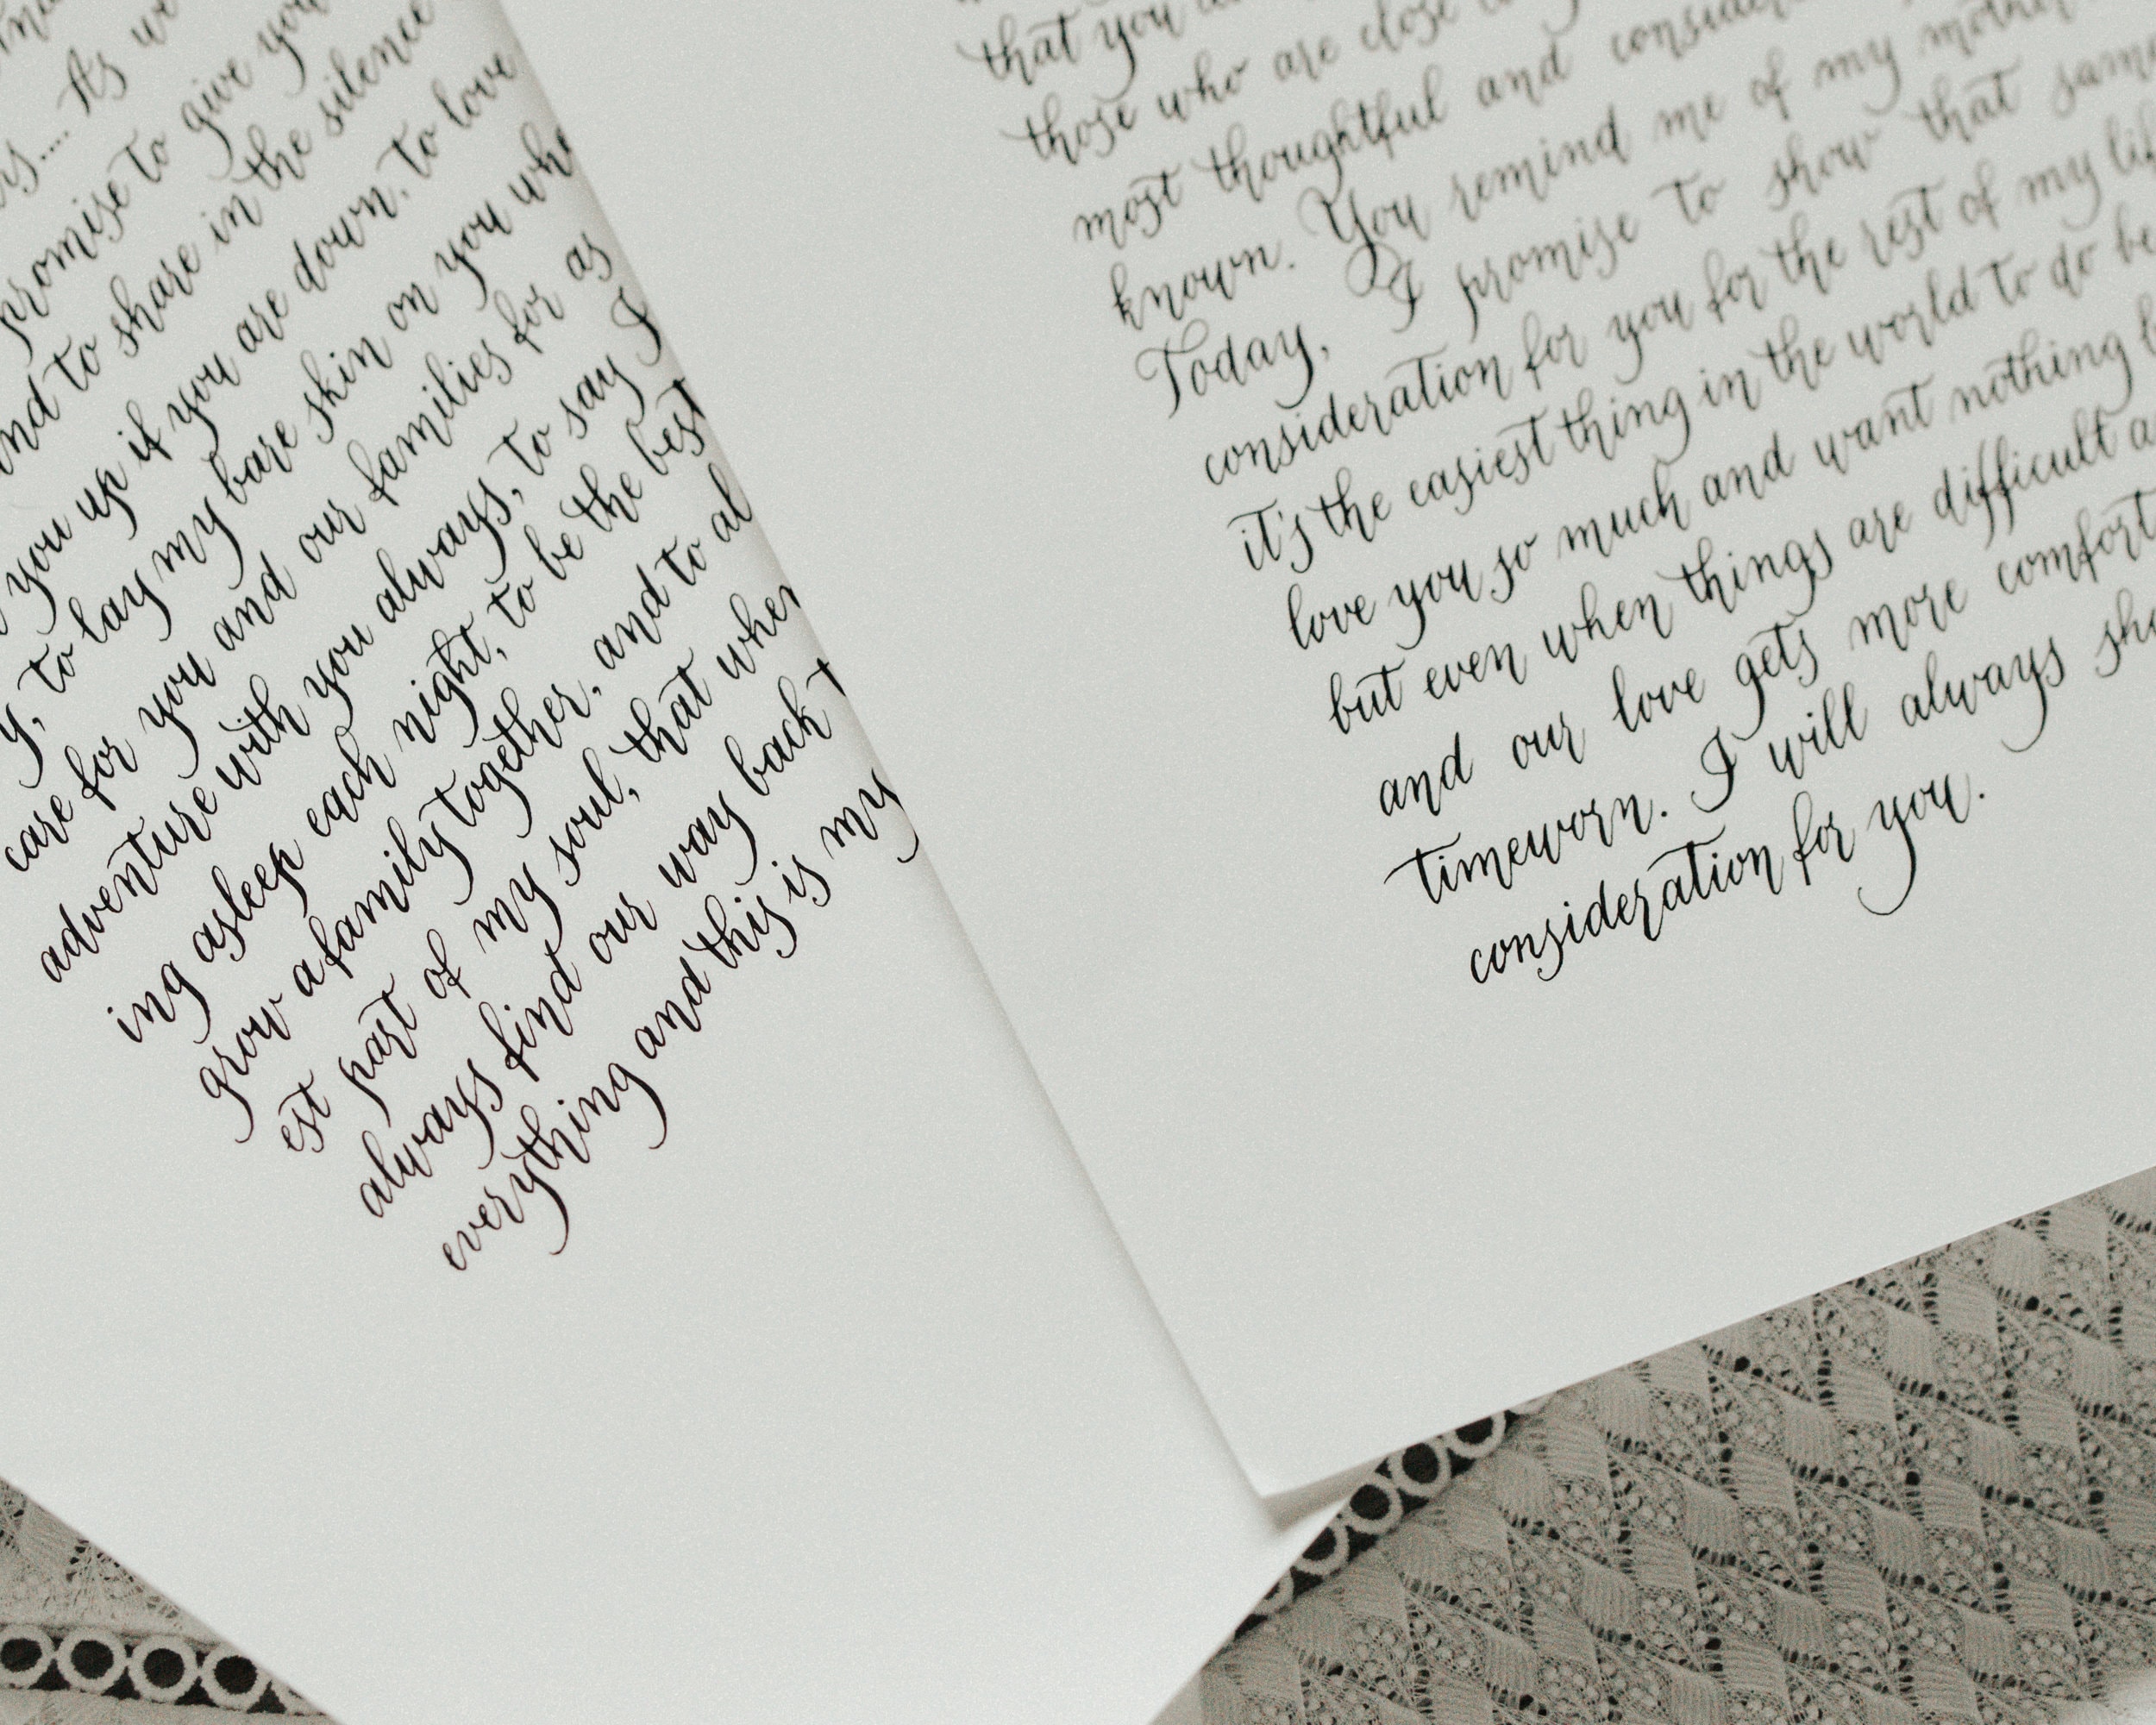 As we
promise to give you
and to share in the silence
you up if you are down, to love
to lay my bare skin on you
care for you and our families for as
adventure with you always, to say I
ing asleep each night, to be the best
grow a family together, and to al
est part of my soul, that
always find our way back
everything and this is my
that you
those who are close
most thoughtful and
known. You remind me of my
Today, I promise to show that
consideration for you for the rest of my
it's the easiest thing in the world to do
love you so much and want nothing
but even when things are difficult
and our love gets more
timeworn. I will always
consideration for you.